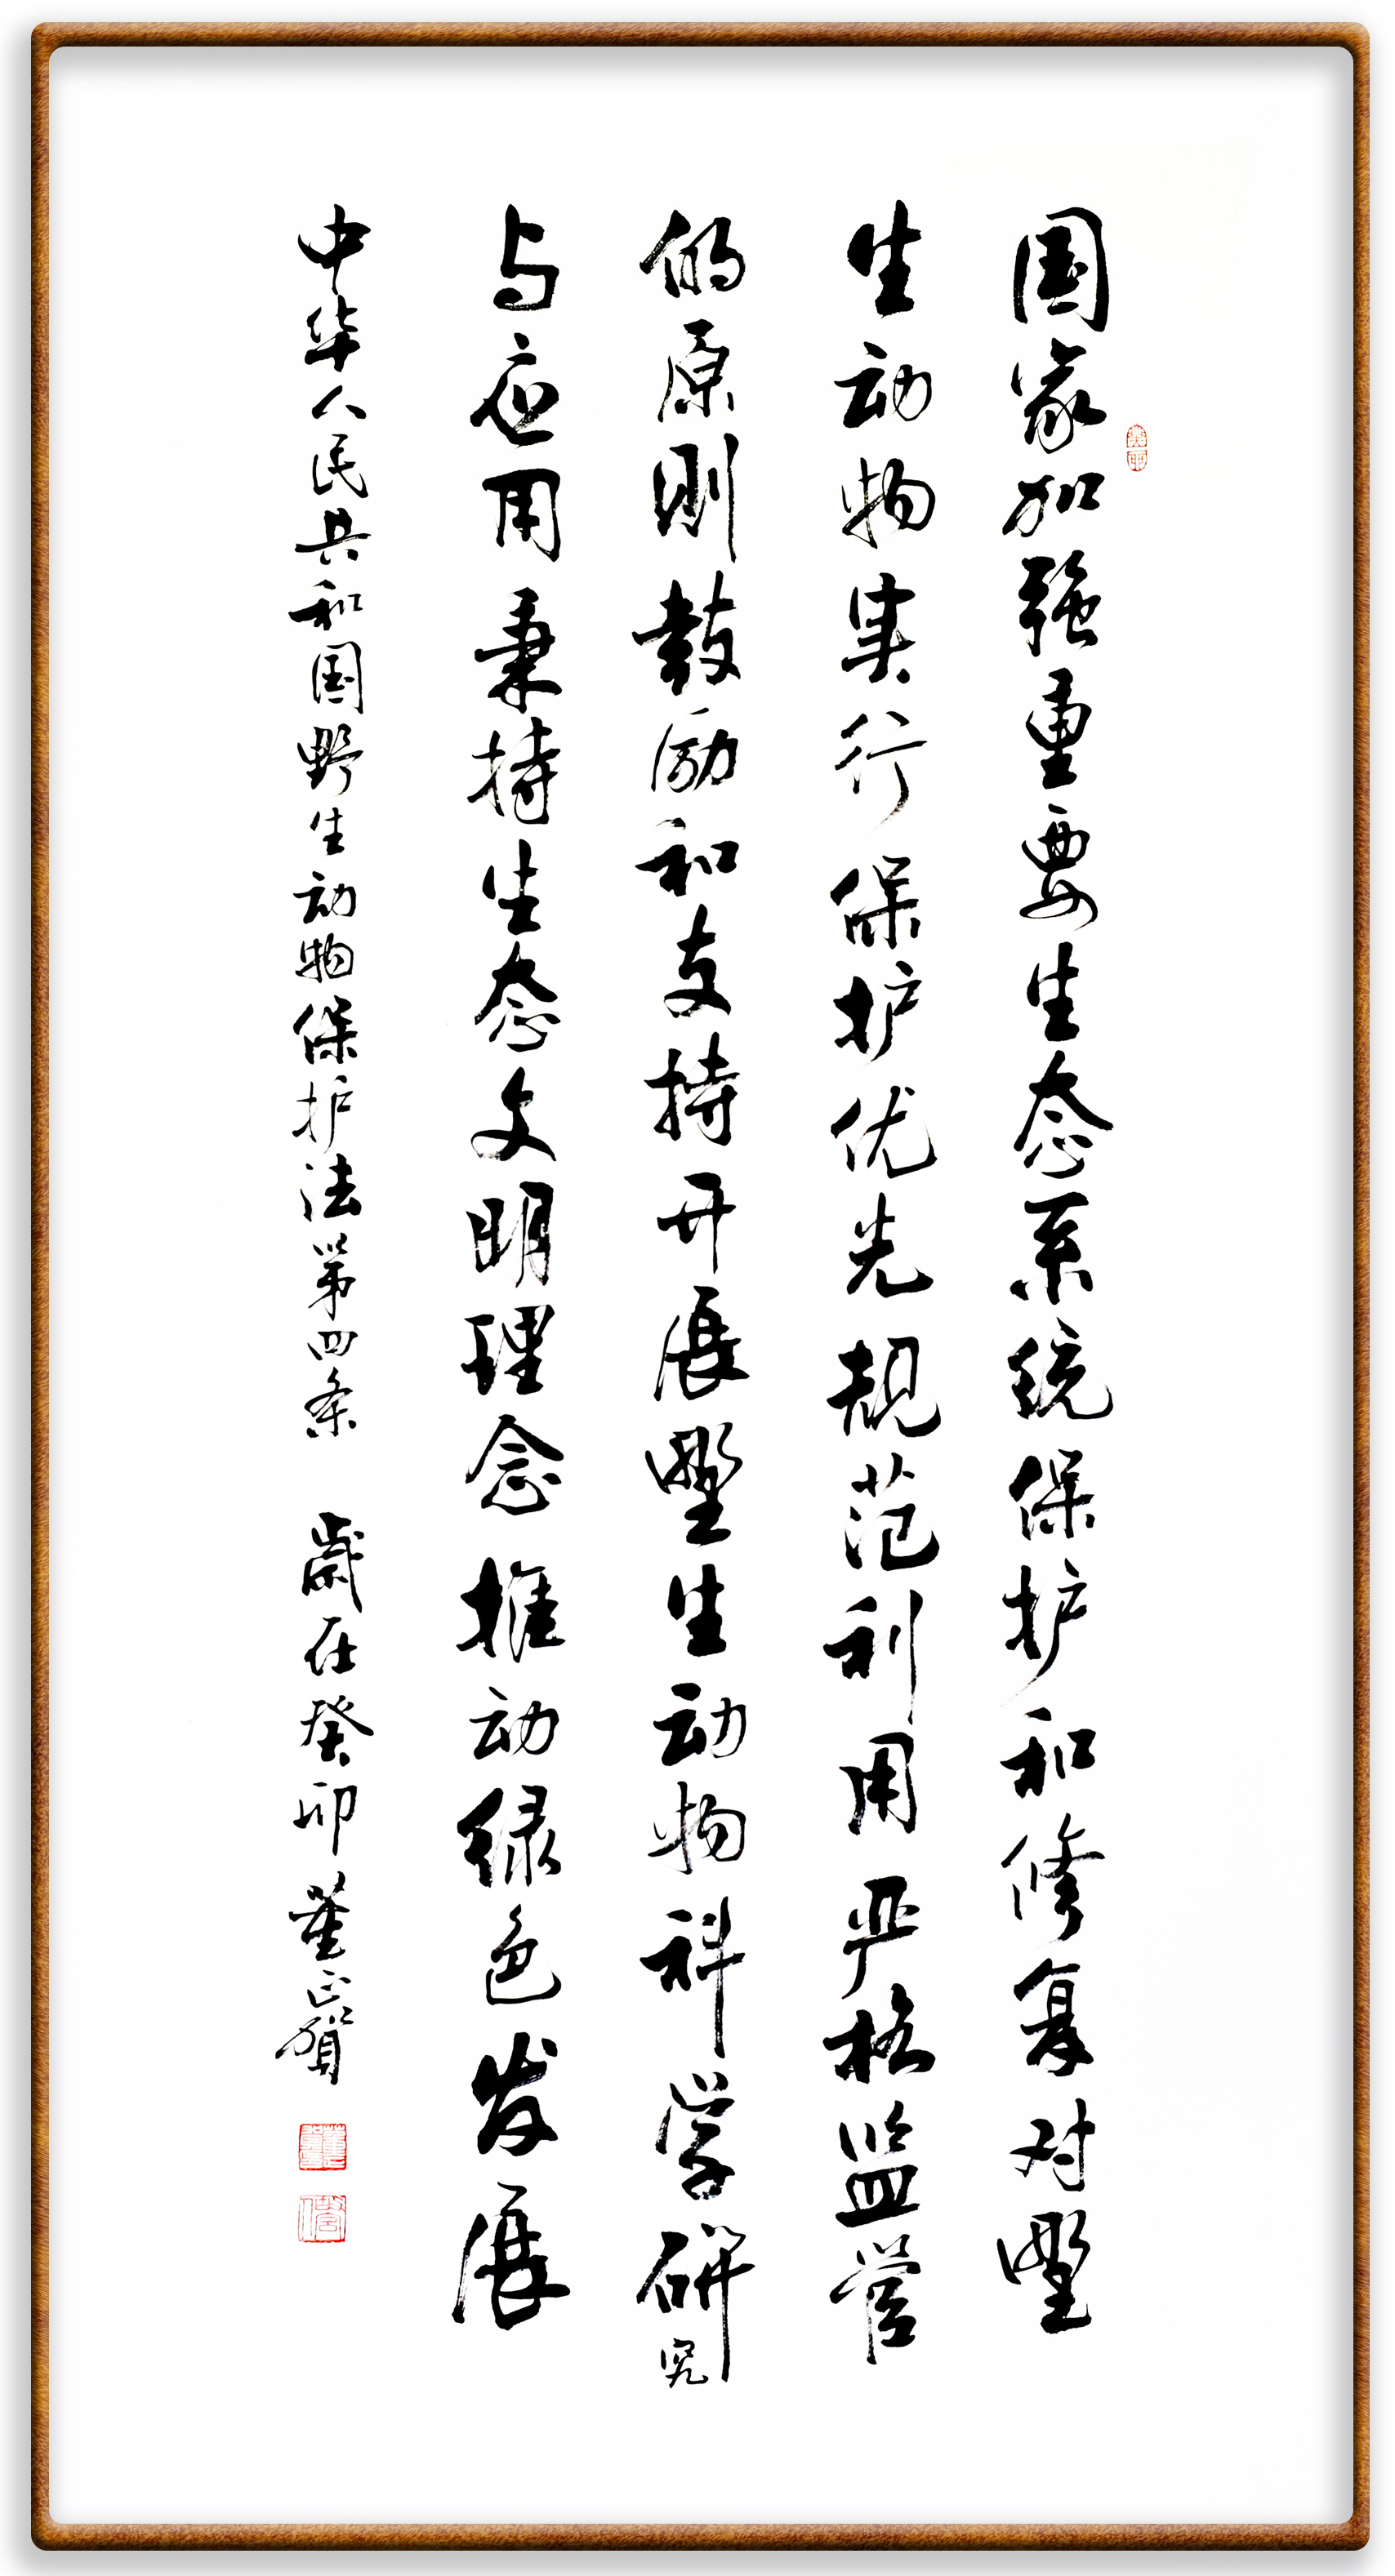 国家加强重要生态系统保护和修复对野
生动物实行保护优先规范利用严格监管
的原则鼓励和支持开展野生动物科学研究
与应用秉持生态文明理念推动绿色发展
中华人民共和国野生动物保护法第四条 歲在癸卯 董正賀